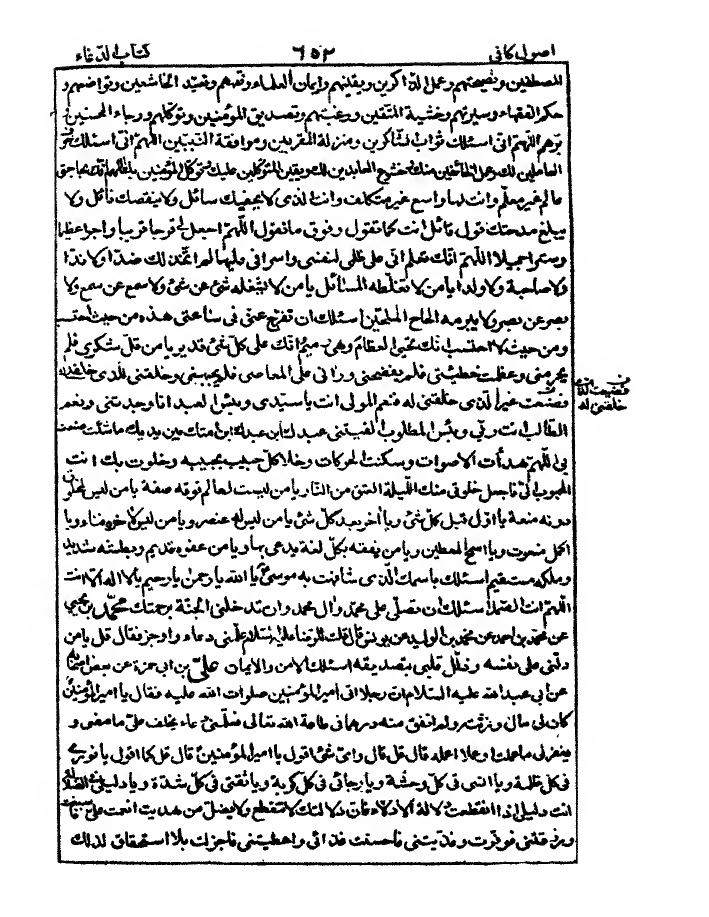 اصول كافى ٦٥٢ كتاب الدعاء
المصطفين ونصيحتهم وعمل الذاكرين ويقينهم وايمان العلماء وفقههم وتعبد الخاشعين وتواضعهم و
حكم الفقهاء وسيرتهم وخشية المتقين ورغبتهم وتصديق المؤمنين وتوكلهم ورجاء المحسنين و
برهم اللهم انى اسئلك ثواب الشاكرين ومنزلة المقربين وموافقة النبيين اللهم انى اسئلك خوف
العاملين لك وعمل الخائفين منك وخشوع العابدين لك ويقين المتوكلين عليك وتوكل المؤمنين بك اللهم انك بحاجتى
عالم غير معلم وانت لها واسع غير متكلف وانت الذى لا يحفيك سائل ولا ينقصك نائل ولا
يبلغ مدحتك قول قائل انت كما تقول وفوق ما نقول اللهم اجعل لى فرجا قريبا واجرا عظيما
وسترا جميلا اللهم انك تعلم انى على ظلمى لنفسى واسرافى عليها لم اتخذ لك ضدا ولا ندا
ولا صاحبة ولا ولدا يا من لا تغلطه المسائل يا من لا يشغله شئ عن شئ ولا سمع عن سمع ولا
بصر عن بصر ولا يبرمه الحاح الملحين اسئلك ان تفرج عنى فى ساعتى هذه من حيث احتسب
ومن حيث لا احتسب انك تحيى العظام وهى رميم انك على كل شئ قدير يا من قل شكرى له فلم
يحرمنى وعظمت خطيئتى فلم يفضحنى ورانى على المعاصى فلم يجبهنى وخلقنى للذى خلقنى له
فصنعت غير الذى خلقنى له فنعم المولى انت يا سيدى وبئس العبد انا وجدتنى ونعم
الطالب انت ربى وبئس المطلوب الفيتنى عبدك ابن عبدك ابن امتك بين يديك ما شئت صنعت
بى اللهم هدأت الاصوات وسكنت الحركات وخلا كل حبيب بحبيبه وخلوت بك انت
المحبوب الى فاجعل خلوتى منك الليلة العتق من النار يا من ليست لعالم فوقه صفة يا من ليس لمخلوق
دونه منعة يا اول قبل كل شئ ويا اخر بعد كل شئ يا من ليس له عنصر ويا من ليس لاخره فناء ويا
اكمل منعوت ويا اسمح المعطين ويا من يفقه بكل لغة يدعى بها ويا من عفوه قديم وبطشه شديد
وملكه مستقيم اسئلك باسمك الذى شافهت به موسى يا الله يا رحمن يا رحيم يا لا اله الا انت
اللهم انت الصمد اسئلك ان تصلى على محمد وال محمد وان تدخلنى الجنة برحمتك محمد بن يحيى
عن محمد بن احمد عن محمد بن الوليد عن يونس قال قلت للرضا عليه السلام علمنى دعاء واوجز فقال قل يا من
دلنى على نفسه وذلل قلبى بتصديقه اسئلك الامن والايمان على بن ابى حمزة عن بعض اصحابه
عن ابى عبد الله عليه السلام ان رجلا اتى امير المؤمنين صلوات الله عليه فقال يا امير المؤمنين
كان لى مال ورثته ولم انفق منه درهما فى طاعة الله تعالى فعلمنى دعاء يخلف على ما مضى و
يغفر لى ما عملت او عملا اعمله قال قل قال واى شئ اقول يا امير المؤمنين قال قل كما اقول يا نورى
فى كل ظلمة ويا انسى فى كل وحشة ويا رجائى فى كل كربة ويا ثقتى فى كل شدة ويا دليلى فى الضلالة
انت دليلى اذا انقطعت دلالة الادلاء فان دلالتك لا تنقطع ولا يضل من هديت انعمت على فاسبغت
ورزقتنى فوفرت وغذيتنى فاحسنت غذائى واعطيتنى فاجزلت بلا استحقاق لذلك
فضيعت الذى
خلقتنى له